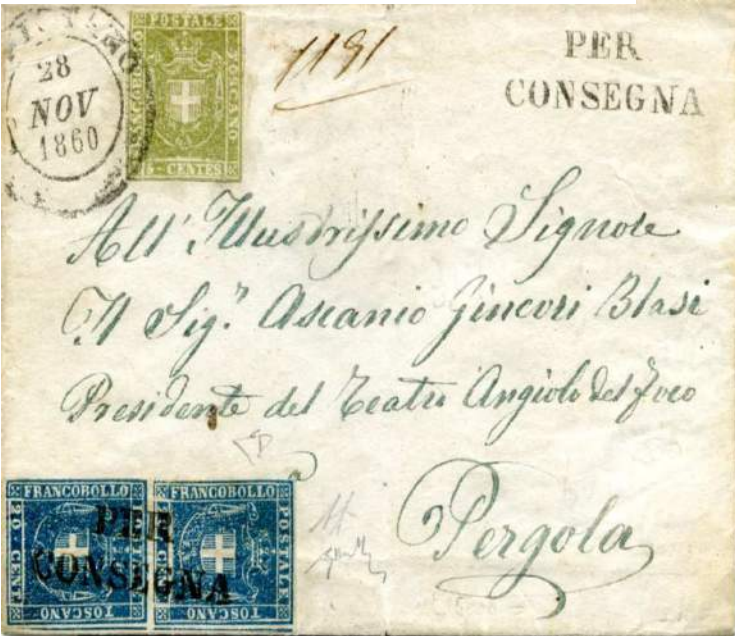 28
NOV
1860
POSTALE
TOSCANO
5 CENTES
1191
PER
CONSEGNA
All' Illustrissimo Signore
Il Sig.r Ascanio Ginevri Blasi
Presidente del Teatro Angiolo del Foco
Pergola
FRANCOBOLLO
20 CENT
TOSCANO
FRANCOBOLLO
POSTALE
TOSCANO
PER
CONSEGNA